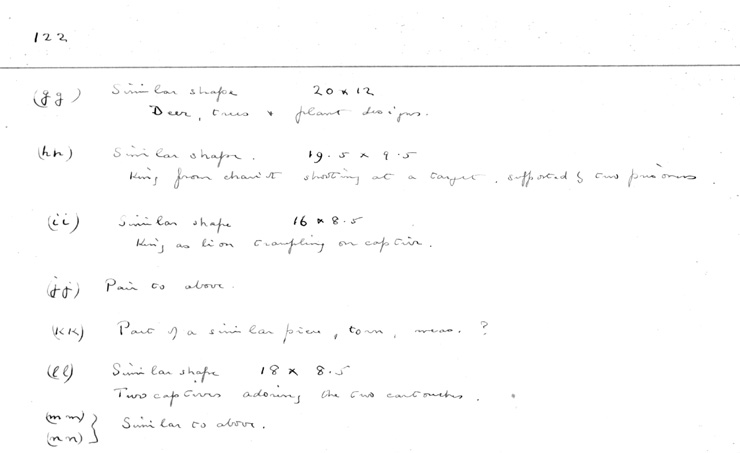 122
(gg) Similar shape 20 x 12
Deer, trees + plant designs.
(hh) Similar shape. 19.5 x 9.5
King from chariot shooting at a target, supported by two prisoners.
(ii) Similar shape 16 x 8.5
King as lion trampling on captive.
(jj) Pair to above.
(KK) Part of a similar piece, torn, meas. ?
(ll) Similar shape 18 x 8.5
Two captives adoring the two cartouches.
(mm)
(nn) } Similar to above.